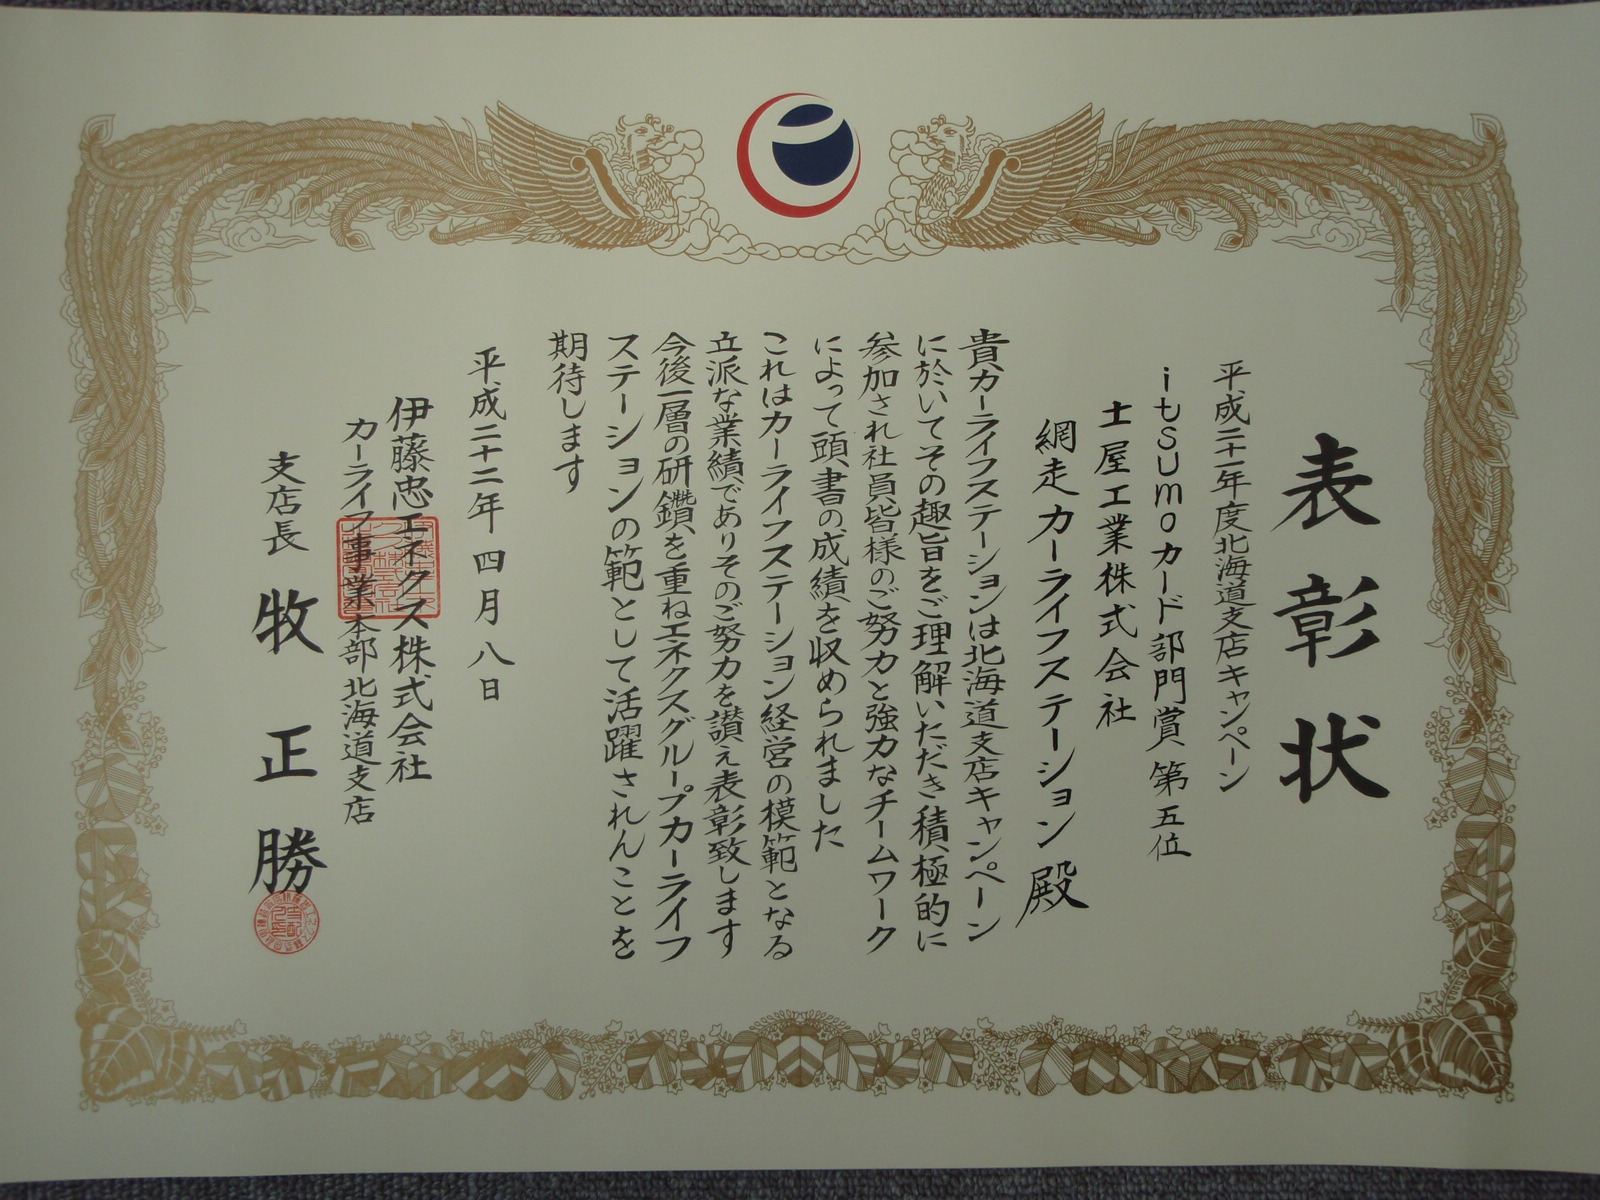 表彰状
平成二十一年度北海道支店キャンペーン
itsumoカード部門賞、第五位
土屋工業株式会社
網走カーライフステーション殿
貴カーライフステーションは北海道支店キャンペーン
に於いてその趣旨をご理解いただき積極的に
参加され社員皆様のご努力と強力なチームワーク
によって頭書の成績を収められました
これはカーライフステーション経営の模範となる
立派な業績でありそのご努力を讃え表彰致します
今後一層の研鑽を重ねエネクスグループカーライフ
ステーションの範として活躍されんことを
期待します
平成二十二年四月八日
伊藤忠エネクス株式会社
カーライフ事業本部北海道支店
支店長 牧正勝